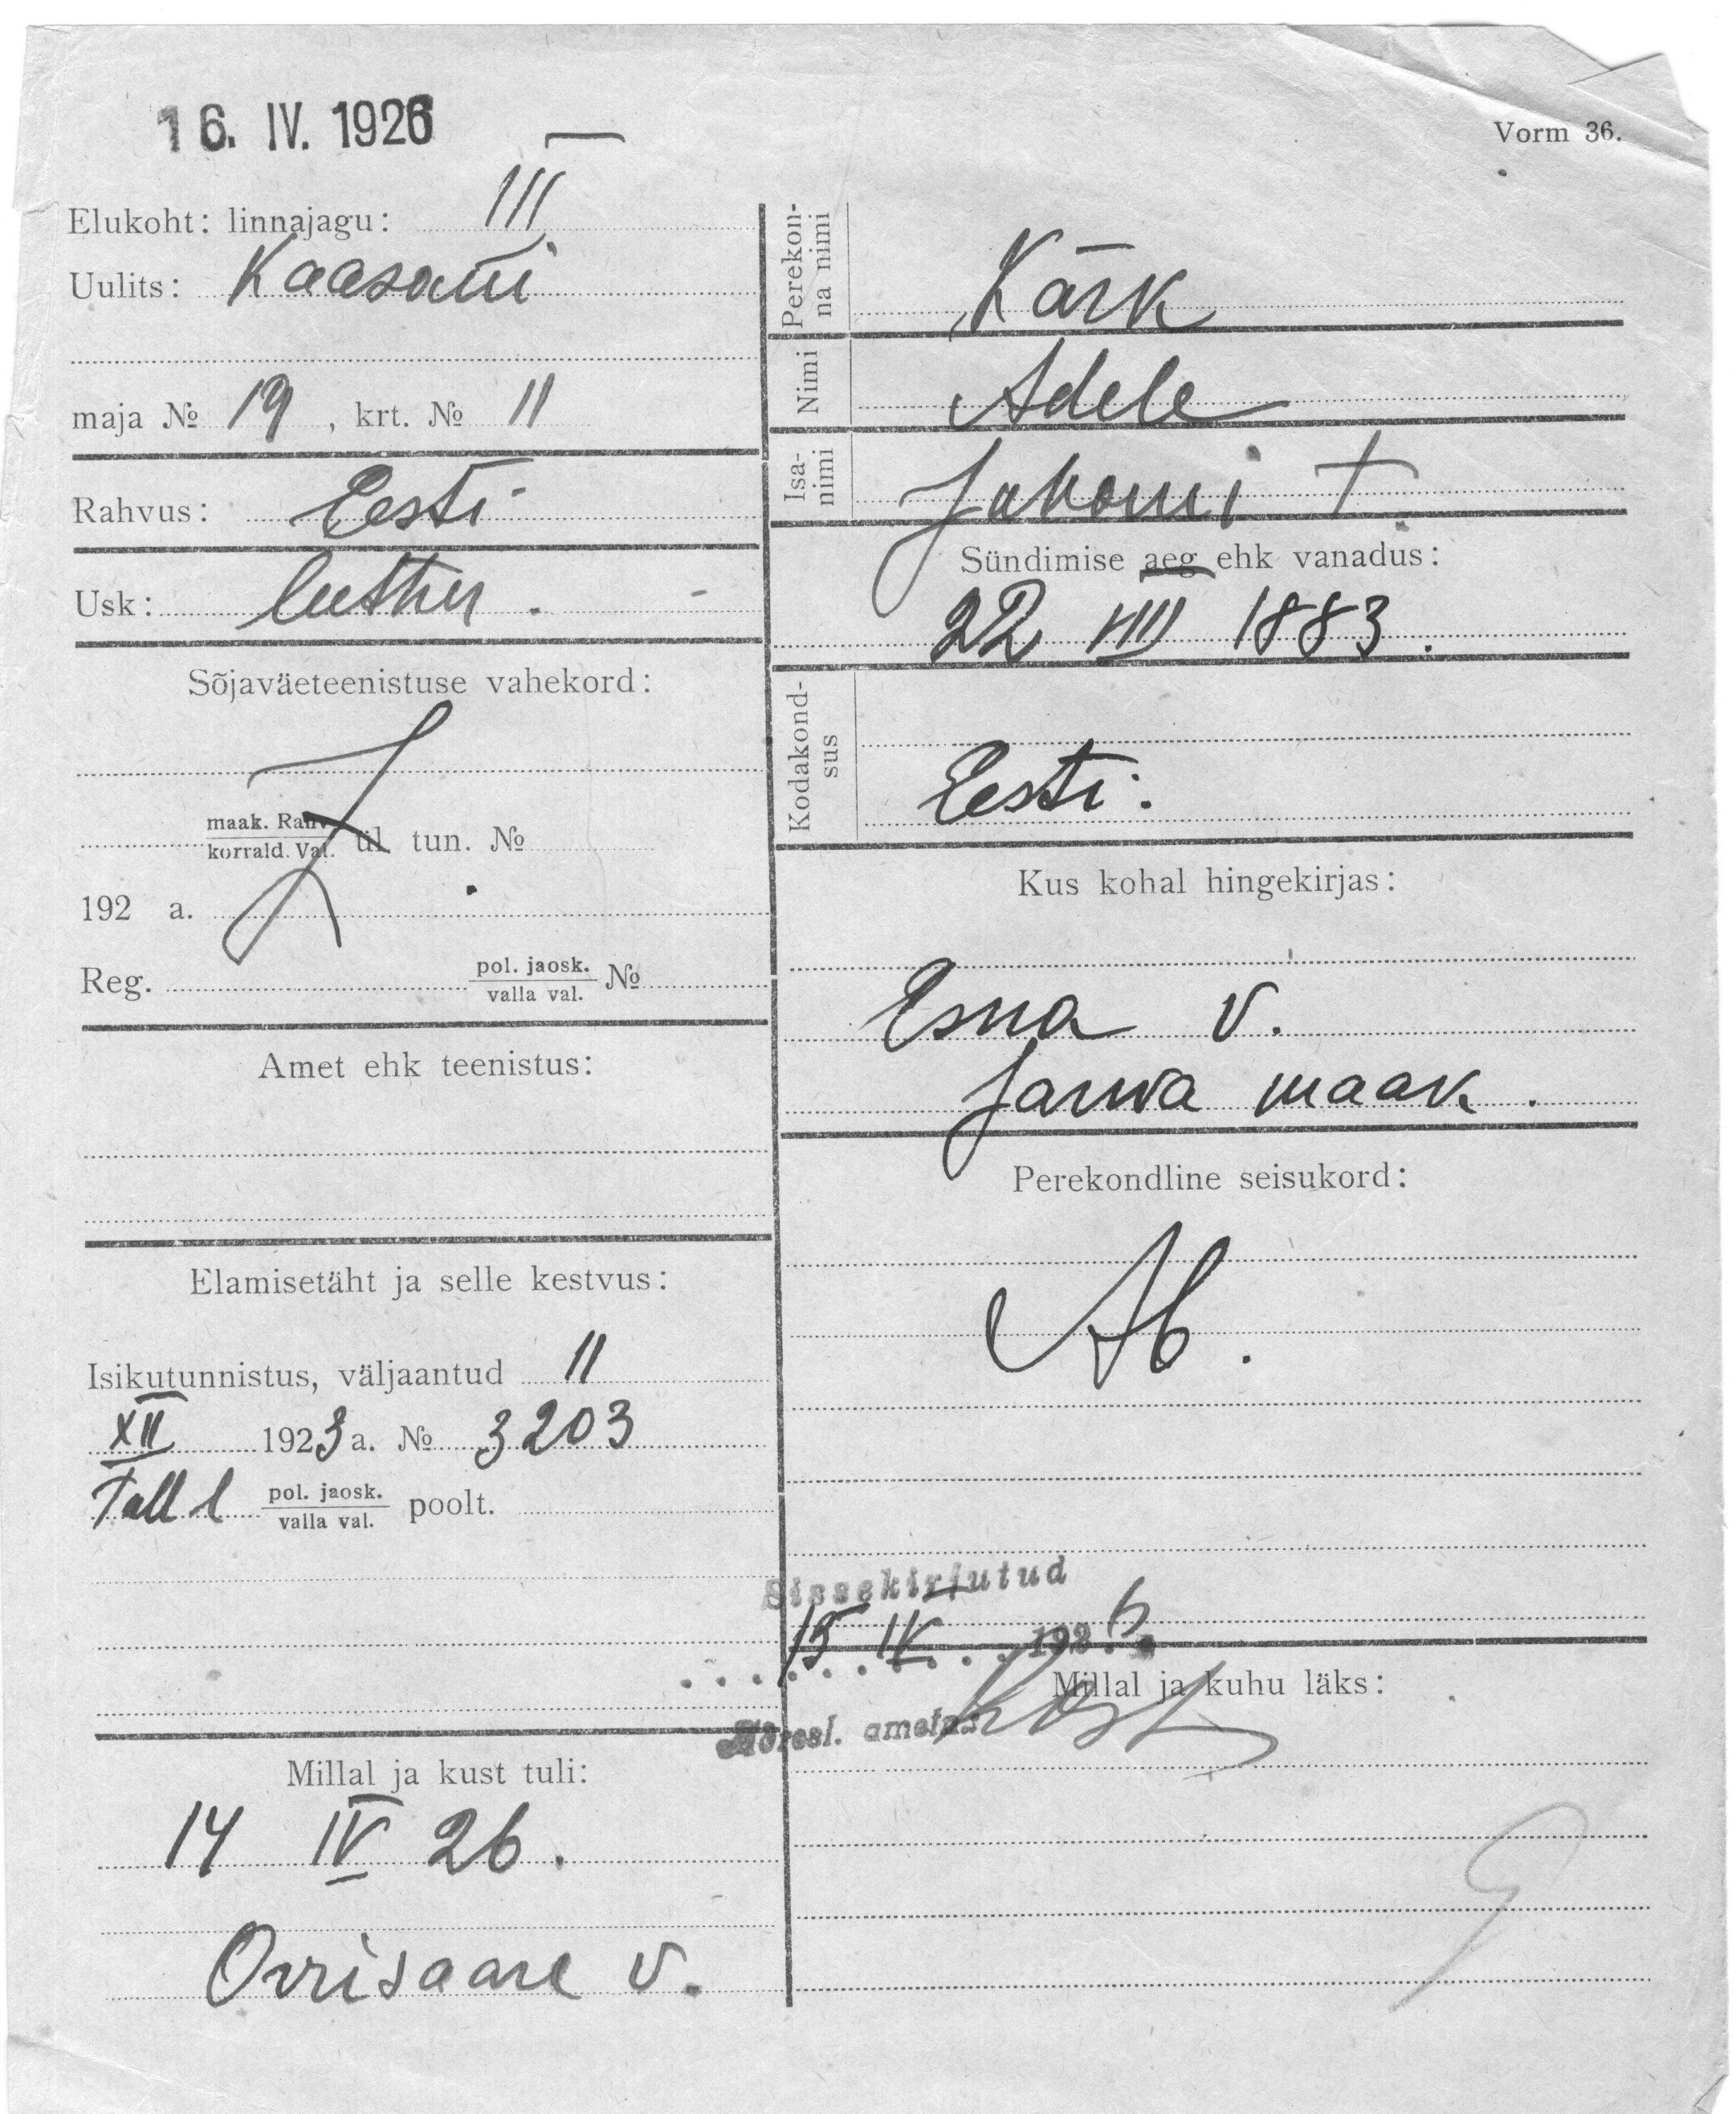 16. IV. 1926
Vorm 36.
Elukoht: linnajagu: III
Uulits: Kaasani
maja № 19, krt. № 11
Rahvus: Eesti
Usk: luther.
Sõjaväeteenistuse vahekord:
maak. Rahv.
korrald. Val. ül. tun. №
192 a.
Reg. pol. jaosk. №
valla val.
Amet ehk teenistus:
Elamisetäht ja selle kestvus:
Isikutunnistus, väljaantud 11
XII 1923 a. № 3203
Tall 1 pol. jaosk. poolt.
valla val.
Millal ja kust tuli:
14 IV 26.
Orrisaare v.
Perekon-
na nimi
Kärk
Nimi
Adele
Isa-
nimi
†
Sündimise aeg ehk vanadus:
22 VIII 1883.
Kodakond-
sus
Eesti.
Kus kohal hingekirjas:
Esna v.
Jarwa maak.
Perekondline seisukord:
Ab.
Sissekirjutud
15 IV 1926.
Adresl. ametn.
Millal ja kuhu läks: